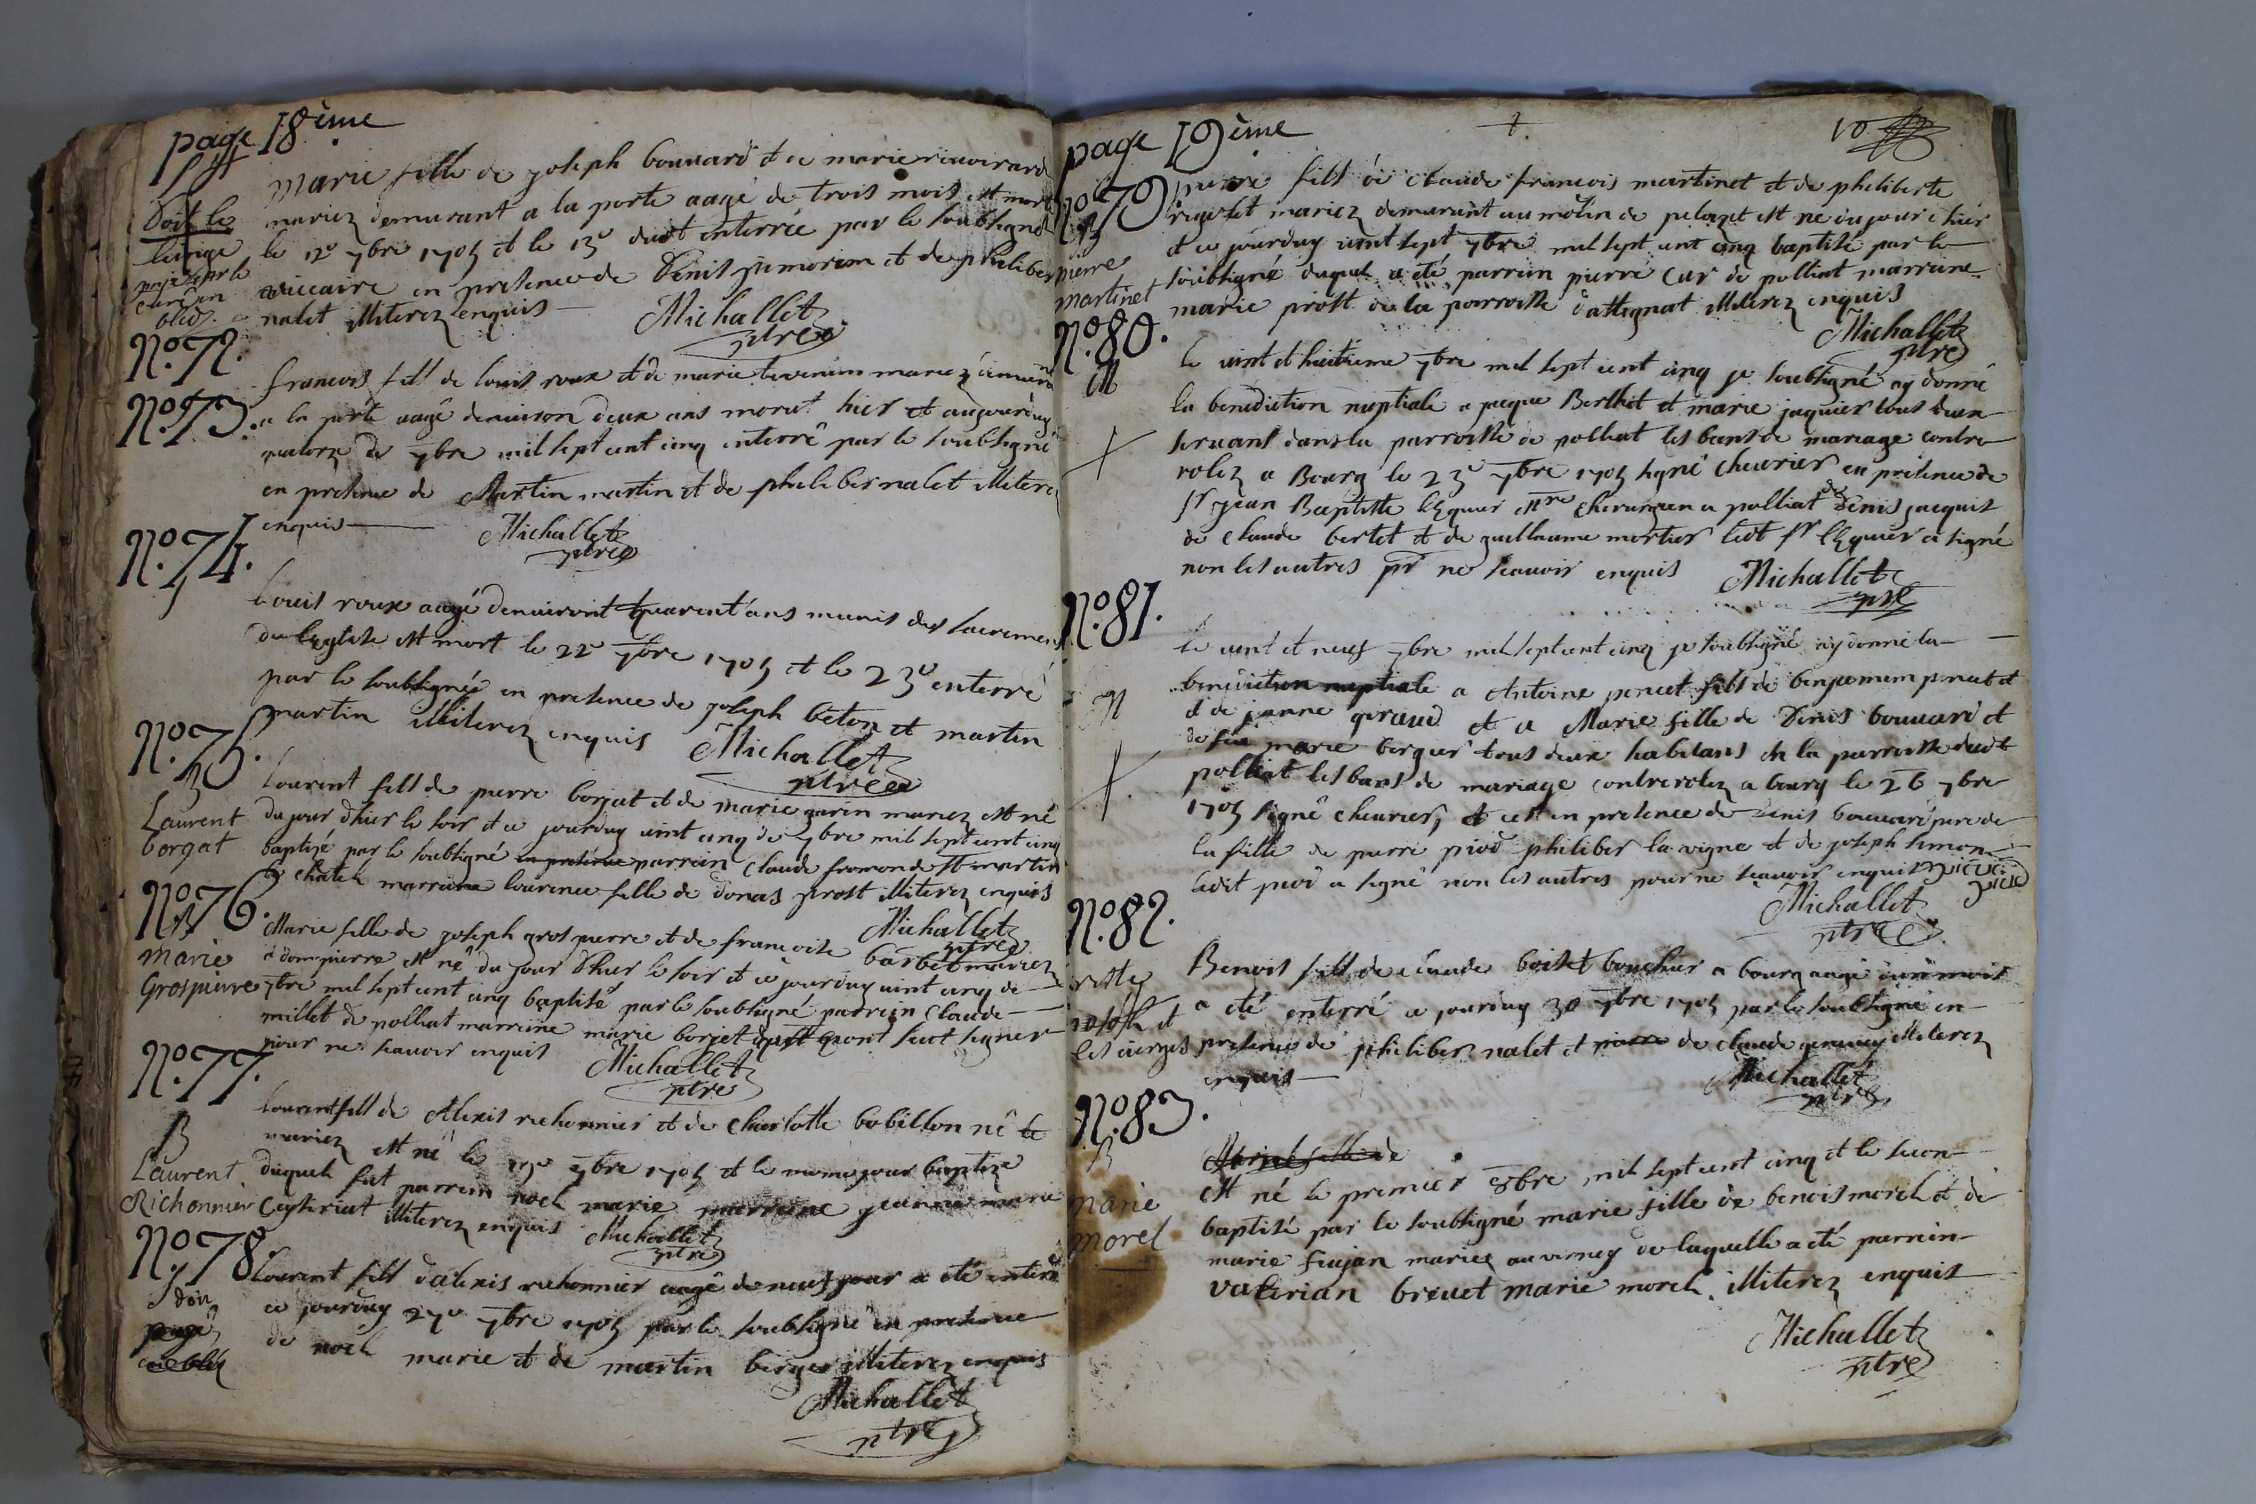 page 18ème
Marie fille de joseph bouuard et de marie riuoirard
mariez demurant a la porte aagé de trois mois est mort
Doit le
le 12e 7bre 1705 et le 13e dudt enterrée par le soubsigné
cierge
payé par le
curé en
bled
viccaire en presence de Denis et de phelibert
nalet illiterez enquis
Michallet
ptre
No. 72.
No. 73.
francois fils de louis roux et de marie mariez
a la porte aagé denuiron deux ans morut hier et aujourduy
quatorze de 7bre mil sept cent cinq enterré par le soubsigné
en presence de Martin martin et de pheliber nalet illiterez
enquis
Michallet
ptre
No. 74.
Louis roux aagé denuiront quarent ans munis des sacremens
de leglise est mort le 22e 7bre 1705 et le 23e enterré
par le soubsignée en presence de joseph beton et martin
martin illiterez enquis
Michallet
ptre
No. 75.
B
Laurent
borgat
Laurent fils de pierre borjat et de marie garin mariez est né
du jour dhier le soir et ce jourduy uint cinq de 7bre mil sept cent cinq
baptizé par le soubsigné en presence parrein claude fromond St martin
le chatel marraine laurence fille de donas prost illiterez enquis
Michallet
ptre
No. 76.
B
Marie
Grospierre
Marie fille de joseph gros pierre et de francoise barbet mariez
a dompierre est né du jour dhier le soir et ce jourduy uint cinq de
7bre mil sept cent cinq baptisé par le soubsigné parrein claude
millet de polliat marreine marie borjet qont sceu signer
pour ne scauoir enquis
Michallet
ptre
No. 77.
B
Laurent
Richonnier
Laurent fils de Alexis richonnier et de charlotte bobillon né le
mariez est né le 7bre 1705 et le meme jour baptize
duquel fut parrein noel marie marreine jeanne marie
Ceyseriat illiterez enquis
Michallet
ptre
No. 78.
doit
payé
en bled
Laurent fils dalexis richonnier aagé de neuf jour a été enterré
ce jourduy 27e 7bre 1705 par le soubsigné en presence
de noel marie et de martin berger illiterez enquis
Michallet
ptre
page 19ème
10
No. 79.
B
pierre
martinet
pierre fils de claude francois martinet et de pheliberte
rigolet mariez demurant au molin de est ne du jour dhier
et ce jourduy uint sept 7bre mil sept cent cinq baptisé par le
soubsigné duquel a été parrein pierre Cur de polliat marreine
marie prost de la parroisse dattignat illiterez enquis
Michallet
ptre
No. 80.
M
le uint et huitieme 7bre mil sept cent cinq je soubsigné ay donné
la benediction nuptiale a jacque Berthet et marie jaquier tous deux
seruant dans la parroisse de polliat les bans de mariage contre
rolez a Bourg le 23e 7bre 1705 signé cheurier en présence de
sr jean Baptiste lEquier Mre chirurgien a polliat de Denis jacquet
de claude bertet et de guillaume mortier ledt sr lEquier a signé
non les autres pr ne scauoir enquis
Michallet
ptre
No. 81.
M
le uint et neuf 7bre mil sept cent cinq je soubsigné ay donné la
benediction nuptiale a Antoine poncet fils de benjamin poncet
et de janne geraud et a Marie fille de Denis bouuard et
de feu marie berger tous deux habitans de la parroisse dudt
polliat les bans de mariage contrerolez a bourg le 26 7bre
1705 signé cheurier, et cest en presence de Denis bouuard pere de
la fille de pierre piod pheliber la vigne et de joseph simon
ledit piod a signé non les autres pour ne scauoir enquis
Michallet
ptre
No. 82.
reste
et
les cierges
Benoist fils de claude boisset boucher a bourg aagé mois
a été enterré ce jourduy 30 7bre 1705 par le soubsigné en
presence de pheliber nalet et de claude illiterez
enquis
Michallet
ptre
No. 83.
B
marie
morel
Marie fille de
est né le premier 8bre mil sept cent cinq et le secon
baptisé par le soubsigné marie fille de benoist morel et de
marie mariez au verney de laquelle a été parrein
valerian breuet marie morel. illiterez enquist
Michallet
ptre